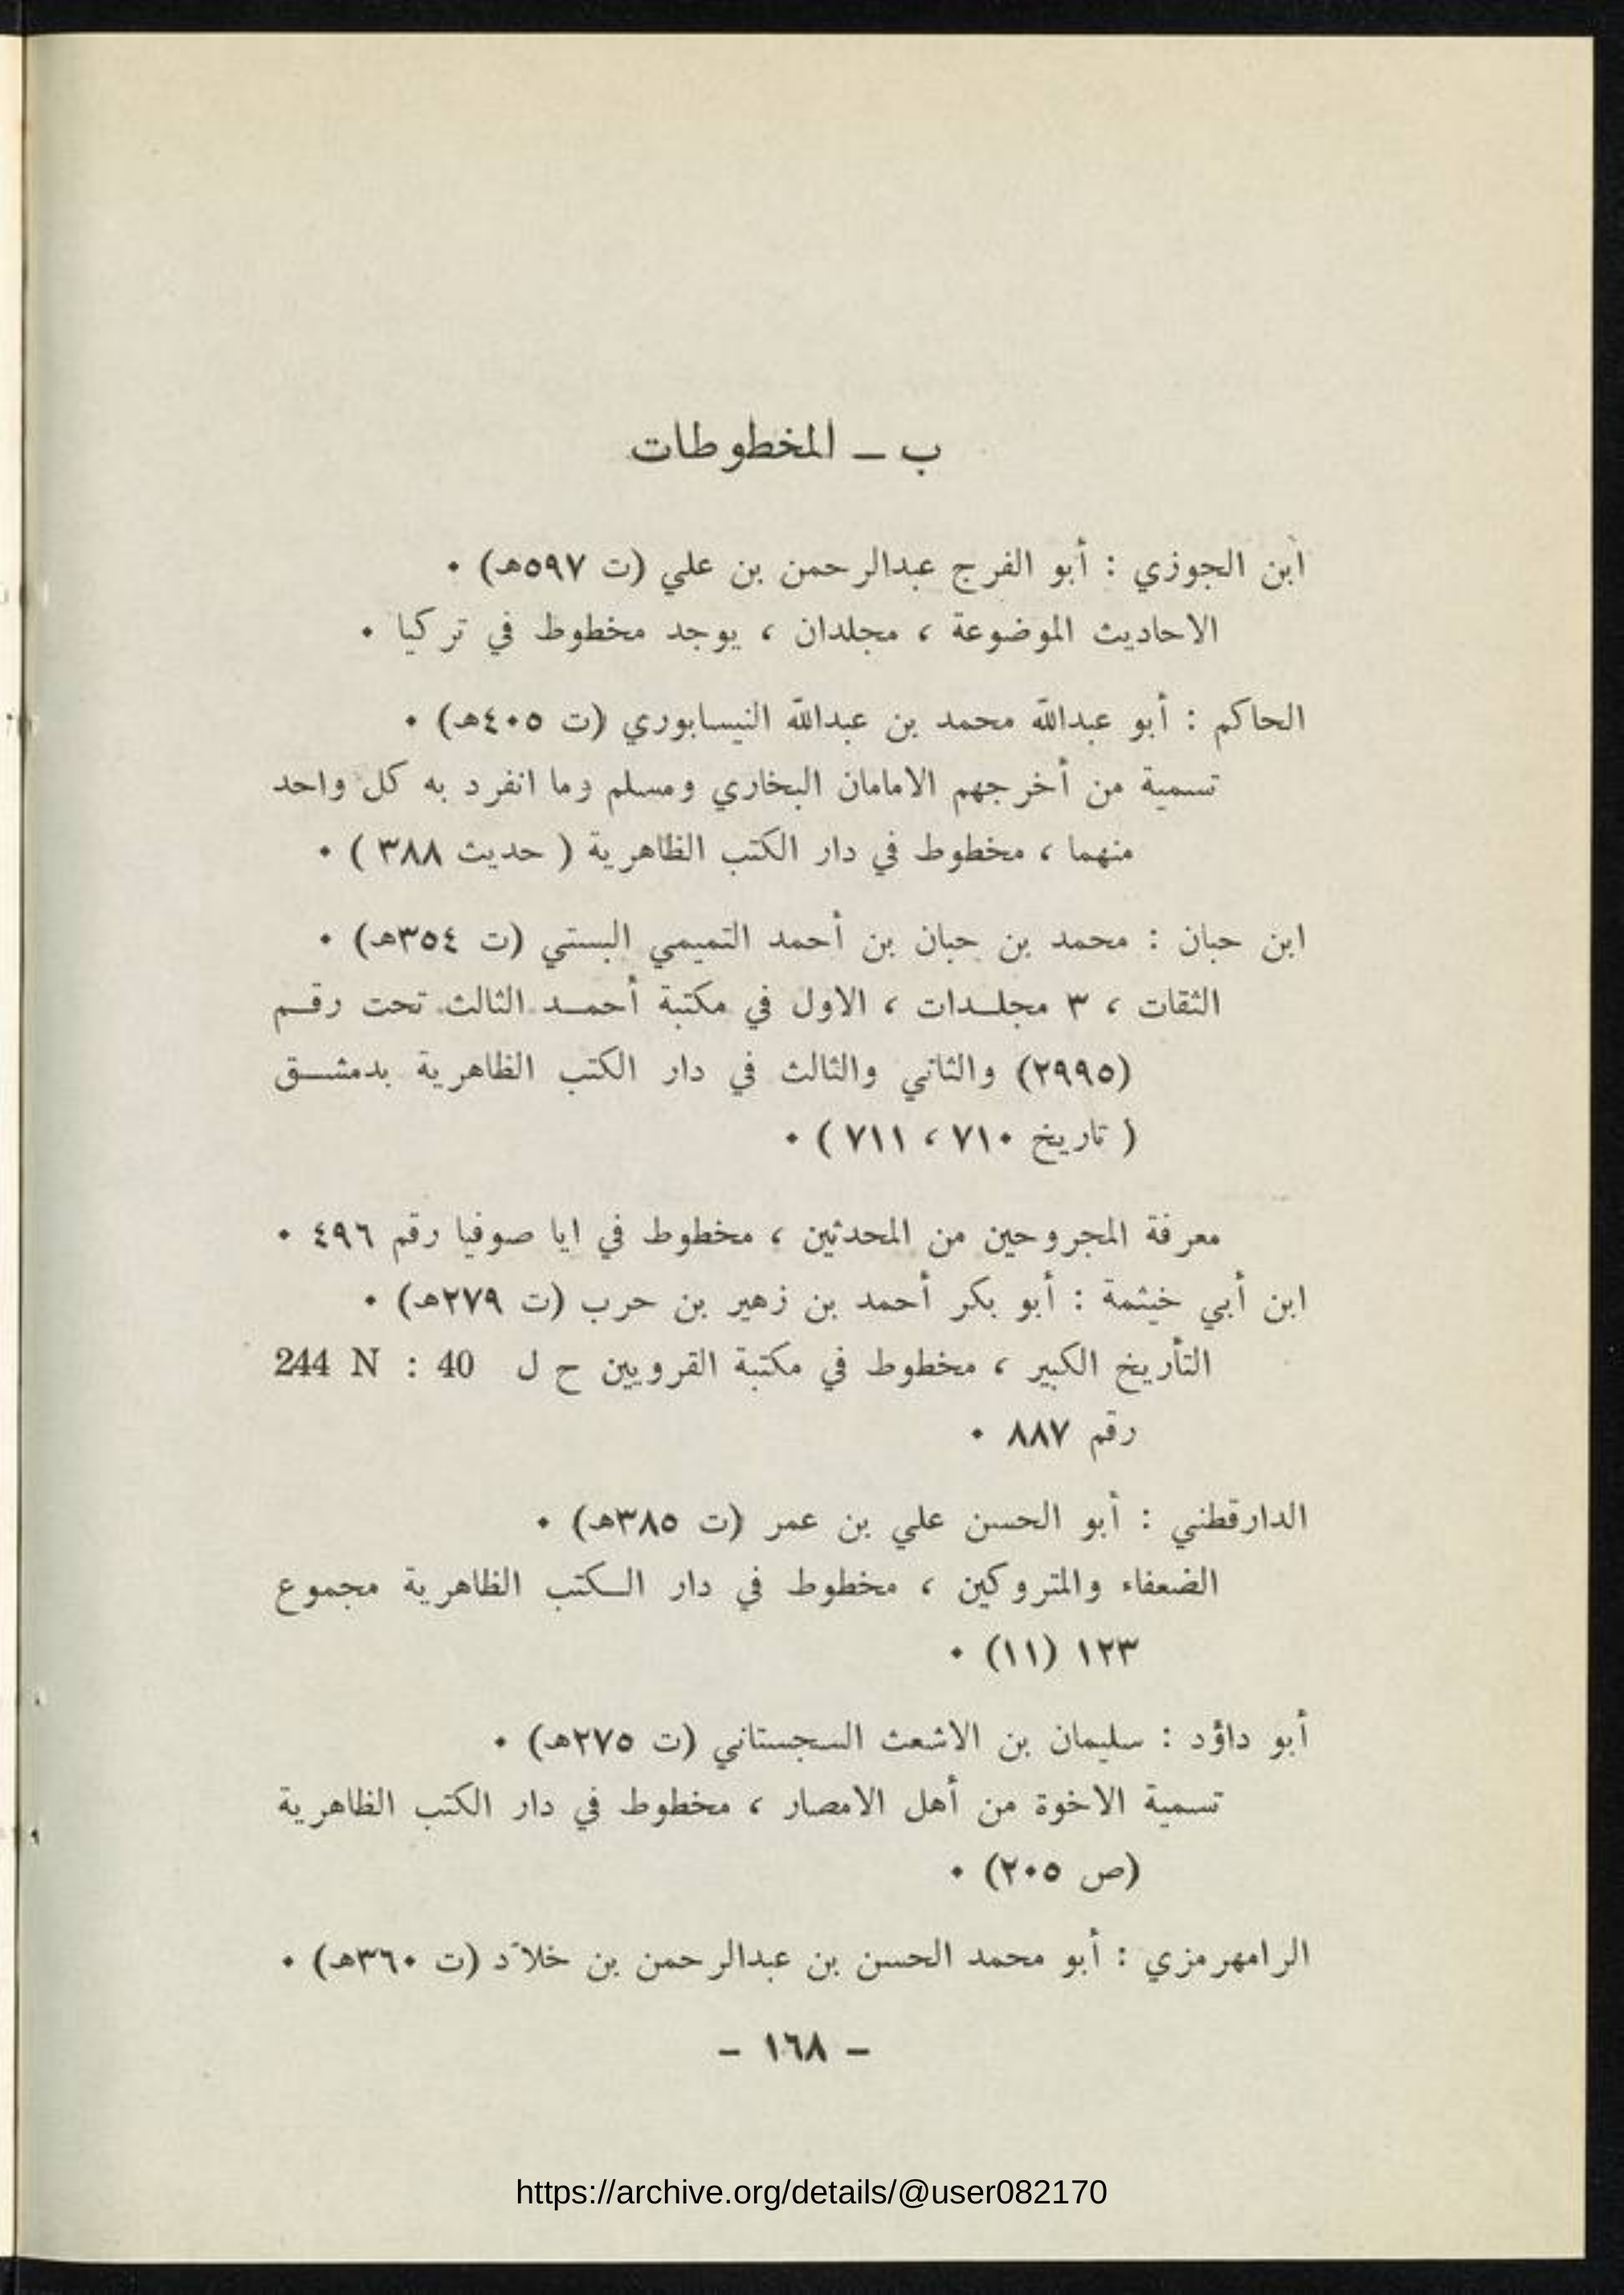 ب ــ المخطوطات
ابن الجوزي : أبو الفرج عبدالرحمن بن علي (ت ٥٩٧هـ) ٠
الاحاديث الموضوعة ، مجلدان ، يوجد مخطوط في تركيا ٠
الحاكم : أبو عبدالله محمد بن عبدالله النيسابوري (ت ٤٠٥هـ) ٠
تسمية من أخرجهم الامامان البخاري ومسلم وما انفرد به كل واحد
منهما ، مخطوط في دار الكتب الظاهرية ( حديث ٣٨٨ ) ٠
ابن حبان : محمد بن حبان بن أحمد التميمي البستي (ت ٣٥٤هـ) ٠
الثقات ، ٣ مجلـدات ، الاول في مكتبة أحمـد الثالث تحت رقـم
(٢٩٩٥) والثاني والثالث في دار الكتب الظاهرية بدمشـق
( تاريخ ٧١٠ ، ٧١١ ) ٠
معرفة المجروحين من المحدثين ، مخطوط في ايا صوفيا رقم ٤٩٦ ٠
ابن أبي خيثمة : أبو بكر أحمد بن زهير بن حرب (ت ٢٧٩هـ) ٠
التأريخ الكبير ، مخطوط في مكتبة القرويين ح ل 244 N : 40
رقم ٨٨٧ ٠
الدارقطني : أبو الحسن علي بن عمر (ت ٣٨٥هـ) ٠
الضعفاء والمتروكين ، مخطوط في دار الـكتب الظاهرية مجموع
١٢٣ (١١) ٠
أبو داؤد : سليمان بن الاشعث السجستاني (ت ٢٧٥هـ) ٠
تسمية الاخوة من أهل الامصار ، مخطوط في دار الكتب الظاهرية
(ص ٢٠٥) ٠
الرامهرمزي : أبو محمد الحسن بن عبدالرحمن بن خلاّد (ت ٣٦٠هـ) ٠
– ١٦٨ –
https://archive.org/details/@user082170